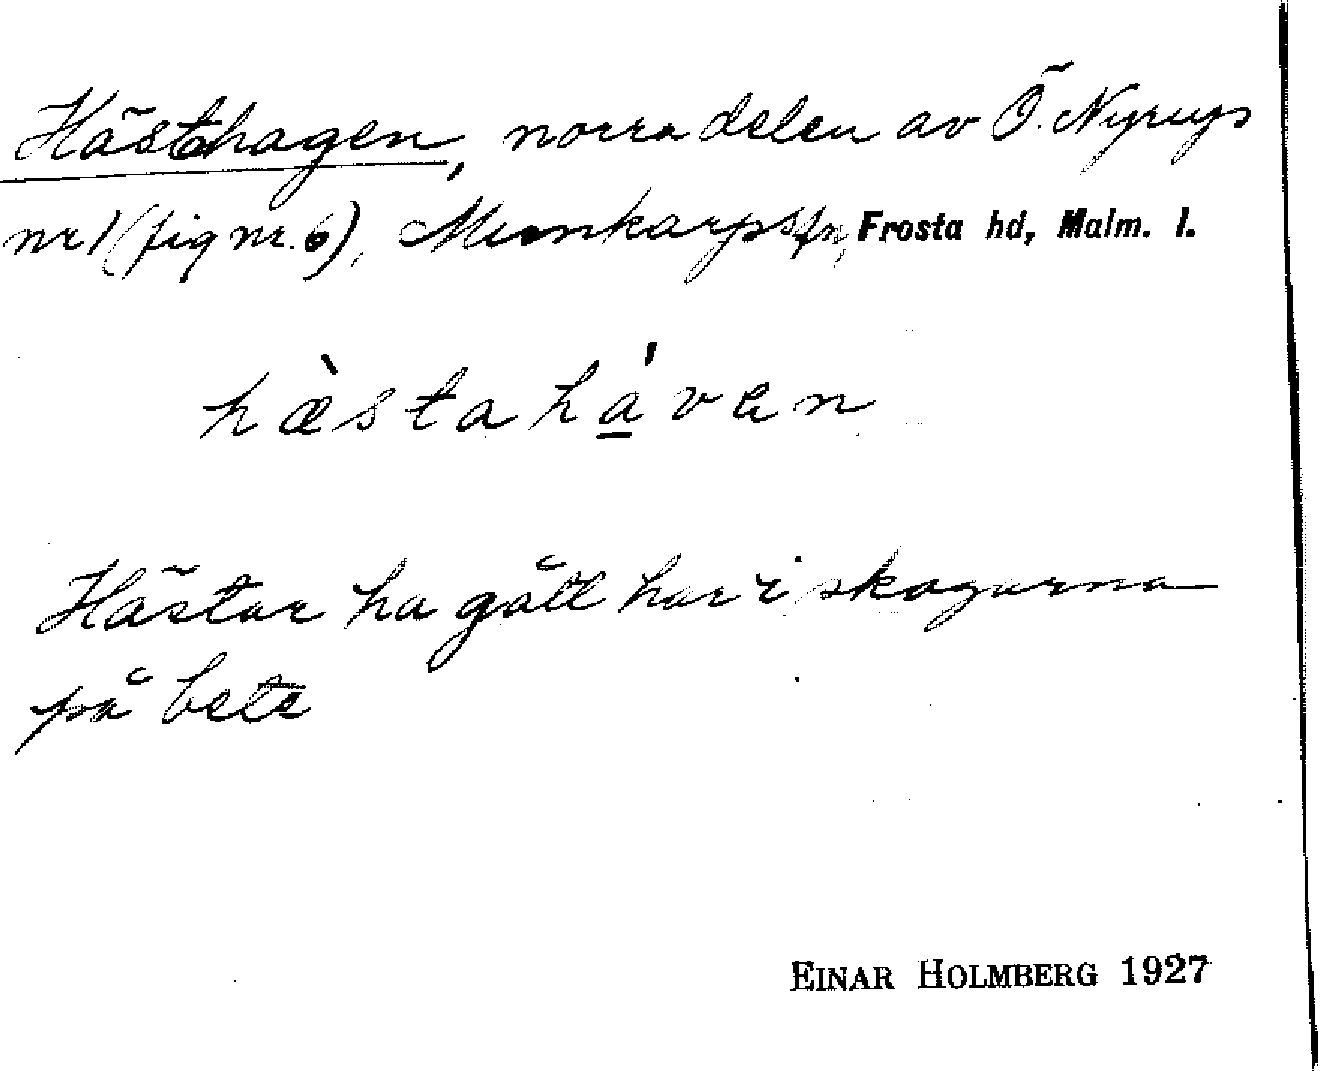 Hästhagen, norra delen av Ö. Nyrups
nr 1 (fig nr. 6), Munkarps sn, Frosta hd, Malm. l.
hæ̀stahá̱ven
Hästar ha gått här i skogarna
på bete
EINAR HOLMBERG 1927